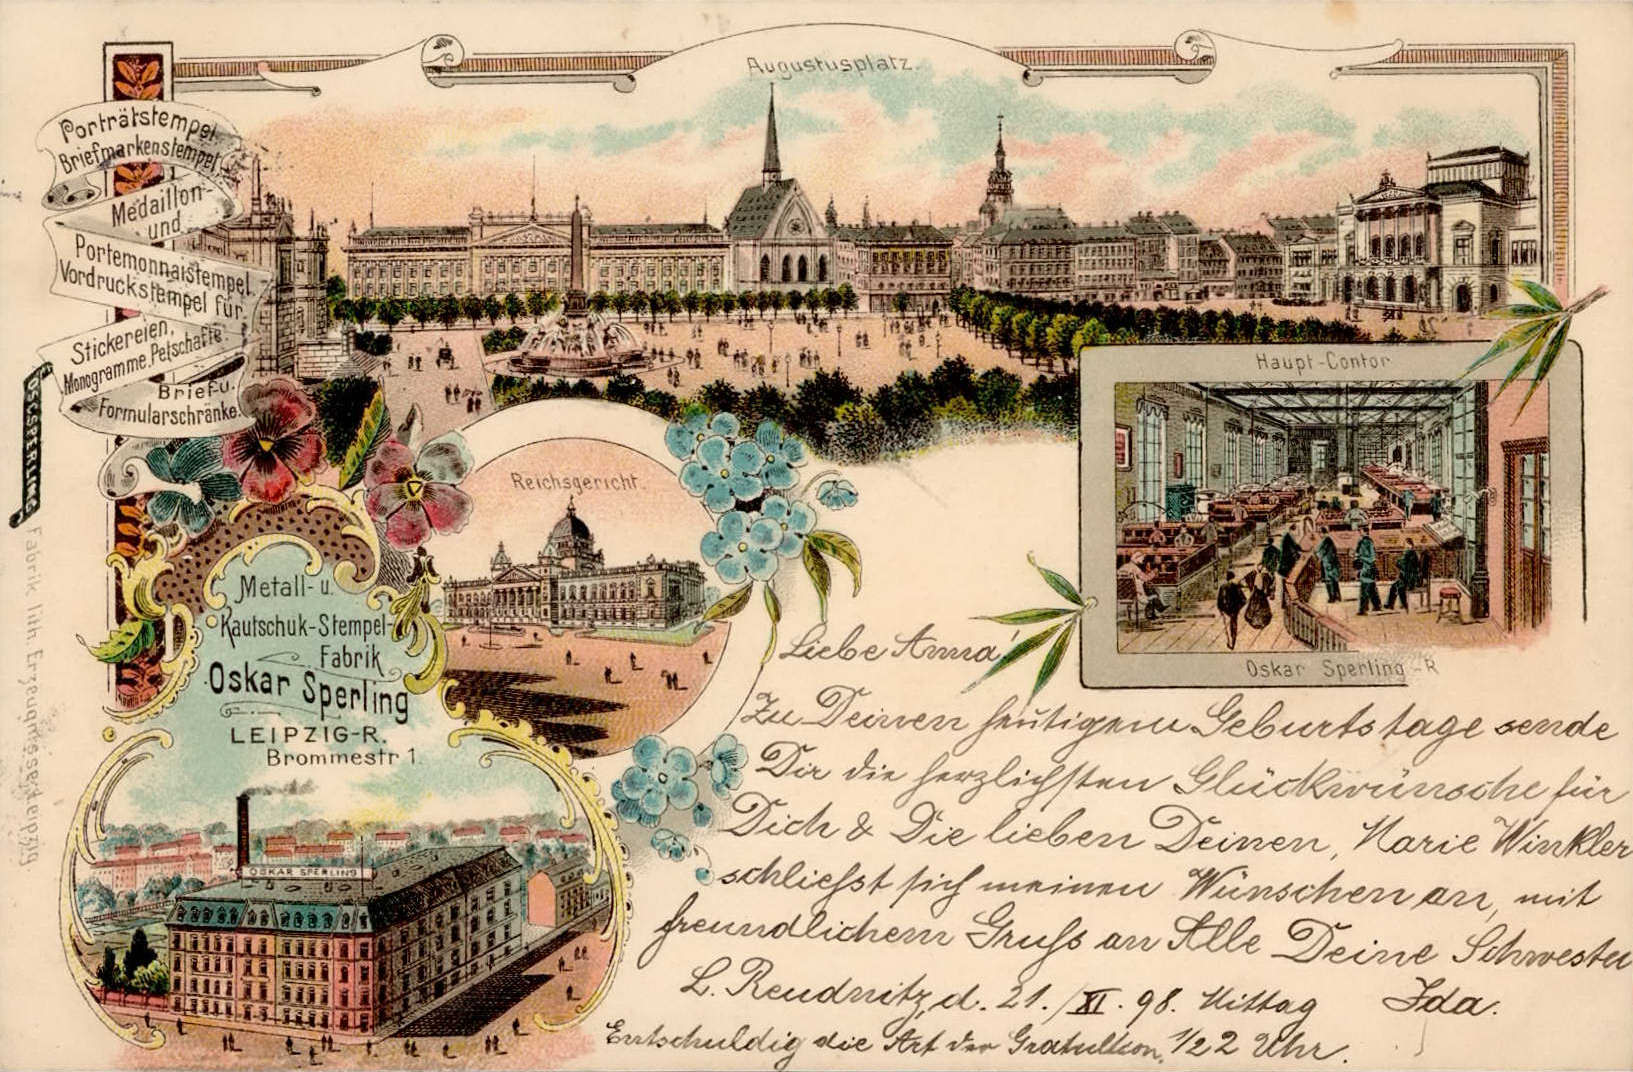 Augustusplatz.
Porträtstempel
Briefmarkenstempel
Medaillon-
und
Portemonnaistempel
Vordruckstempel für
Stickereien,
Monogramme. Petschafte.
Brief- u.
Formularschränke.
Haupt-Contor
Oskar Sperling-R
Reichsgericht.
Metall- u.
Kautschuk-Stempel-
Fabrik
Oskar Sperling
LEIPZIG-R.
Brommestr 1.
OSKAR SPERLING
OSC. STERLING
Fabrik lith. Erzeugnisse Leipzig.
Liebe Anna!
Zu Deinen heutigem Geburtstage sende
Dir die herzlichsten Glückwünsche für
Dich & Die lieben Deinen, Marie Winkler
schliesst sich meinen Wünschen an, mit
freundlichem Gruss an Alle Deine Schwester
L. Reudnitz, d. 21./XI. 98. Mittag Ida.
Entschuldig die Art der Gratulation. 1/2 2 Uhr.